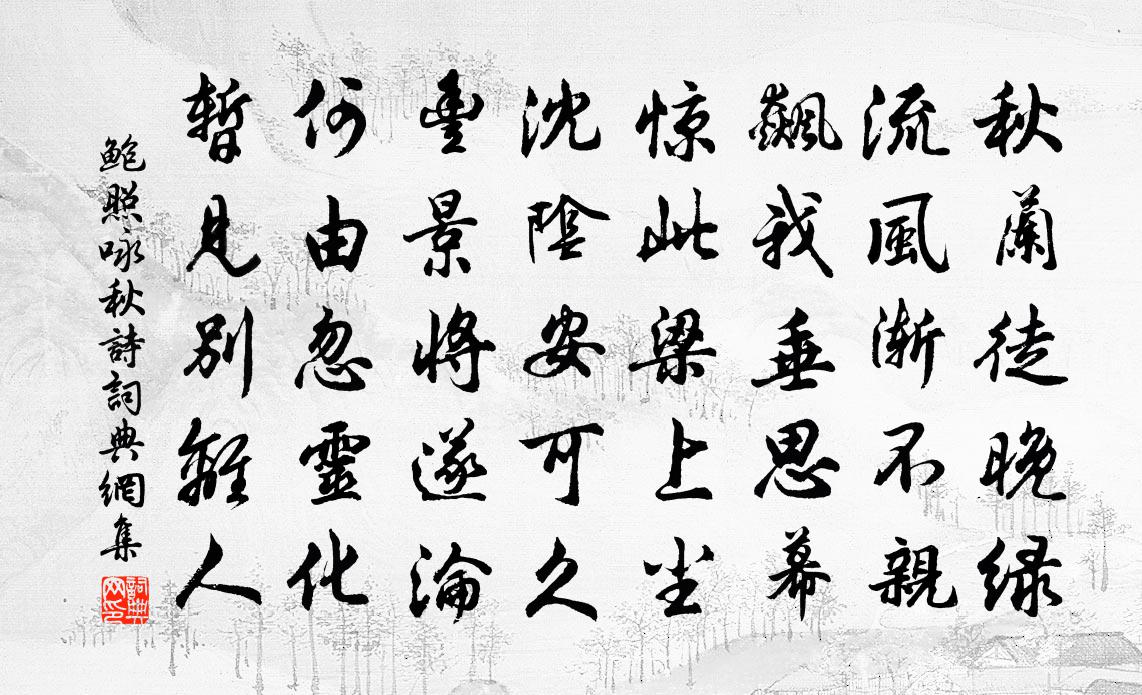 秋蘭徒晚绿
流風渐不親
飆我垂思幕
惊此梁上尘
沈陰安可久
豊景將遂淪
何由忽靈化
暫見別離人
鮑照咏秋詩詞典網集
詞典网印